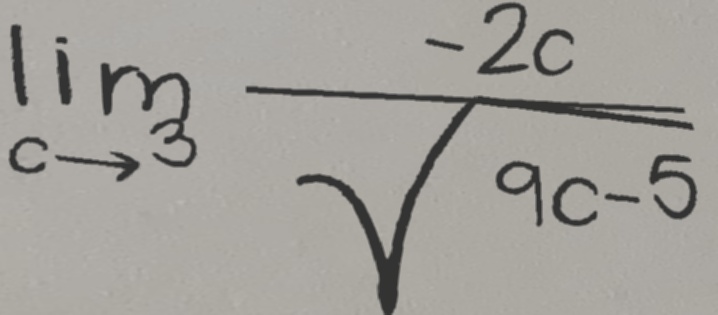 lim c→3 -2c/√(9c-5)